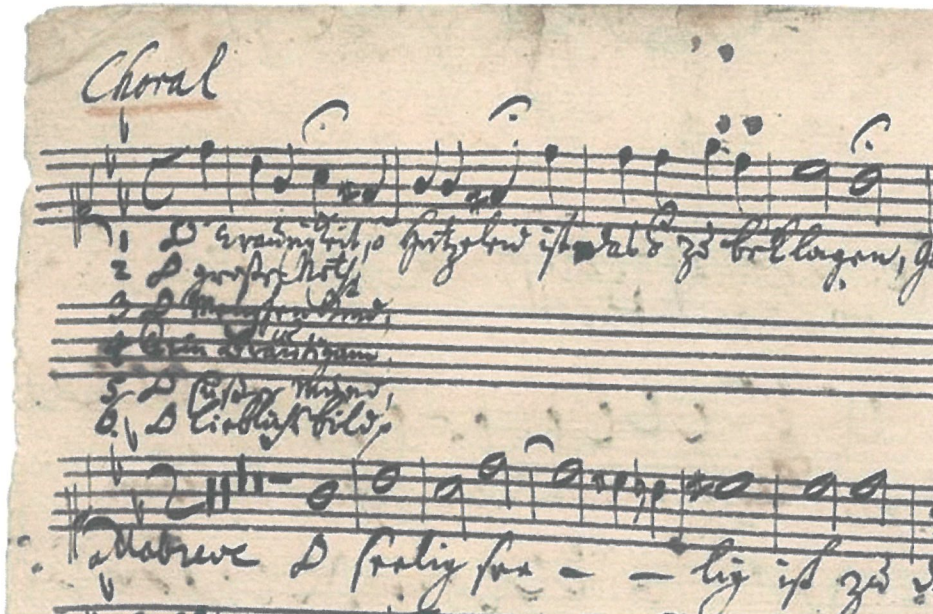 Choral
1 O Traurigkeit, o Hertzeleid ist das zu beklagen,
2 O große Noth,
3 O Menschenkind,
4 Dein Bräutigam
5 O süßer Mund,
6. O lieblichs bild,
Allabreve O seelig see - - lig ist zu